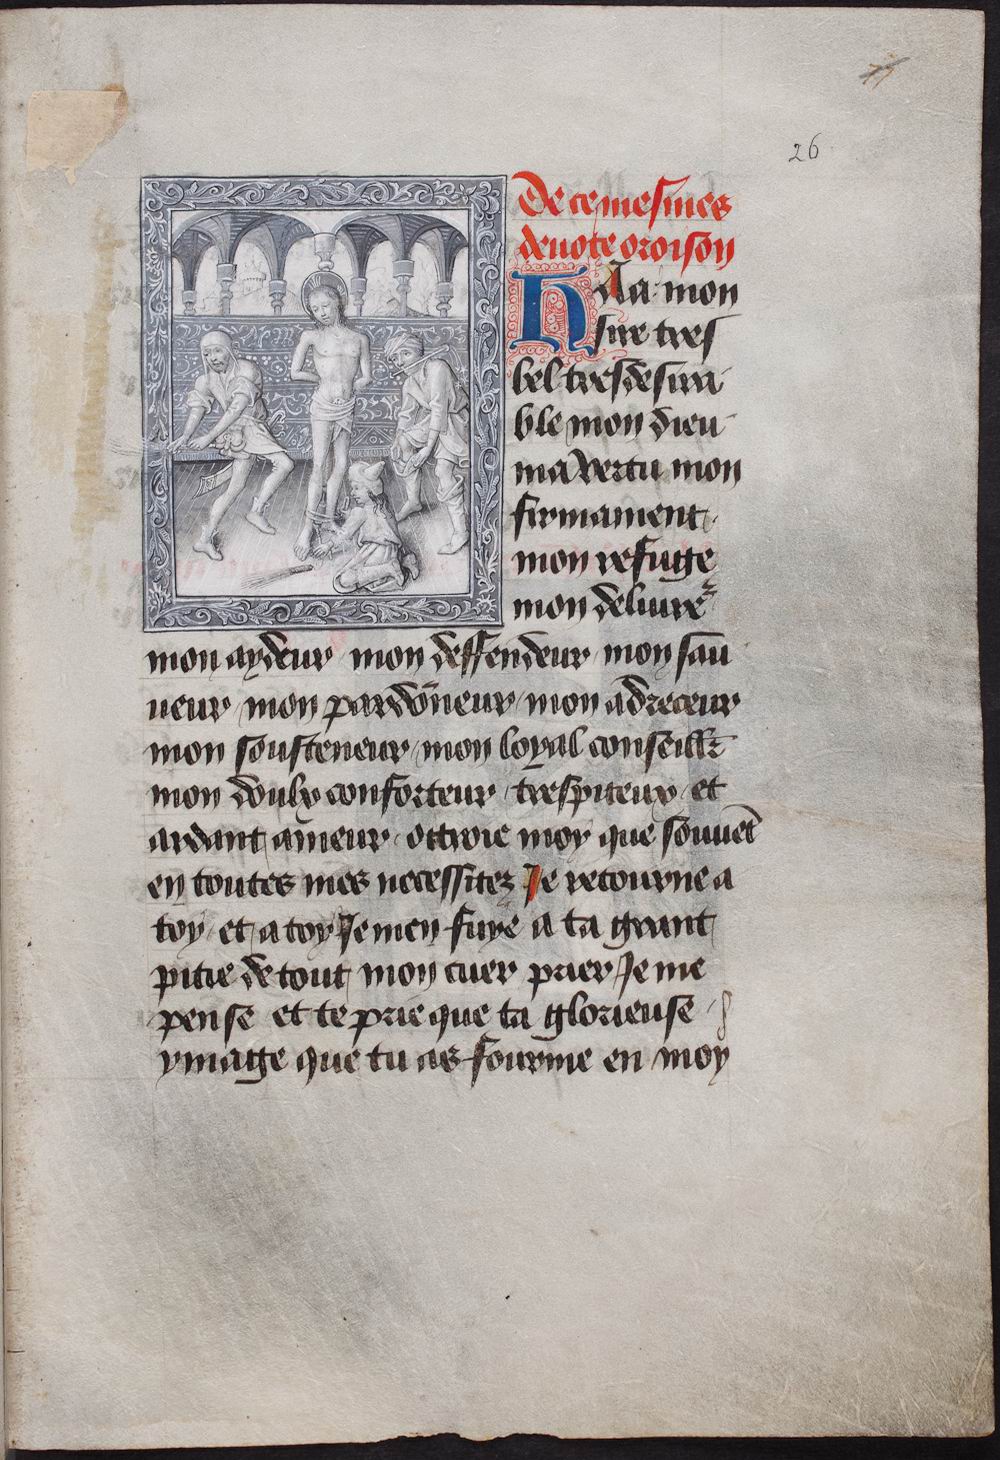 77
26
De ce mesmes
deuote oroison
Haa mon
sire tres
bel tresdesira
ble mon dieu
ma vertu mon
firmament
mon refuge
mon deliure
mon aydeur mon deffendeur mon sau
ueur mon pardōneur mon adreceur
mon sousteneur mon loyal conseillr̄
mon doulx conforteur trespiteux et
ardant ameur ottroie moy que souuēt
en toutes mes necessitez Je retourne a
toy et a toy Je men fuye a ta grant
pitie de tout mon cuer prier Je me
pense et te prie que ta glorieuse
ymage que tu as fourme en moy